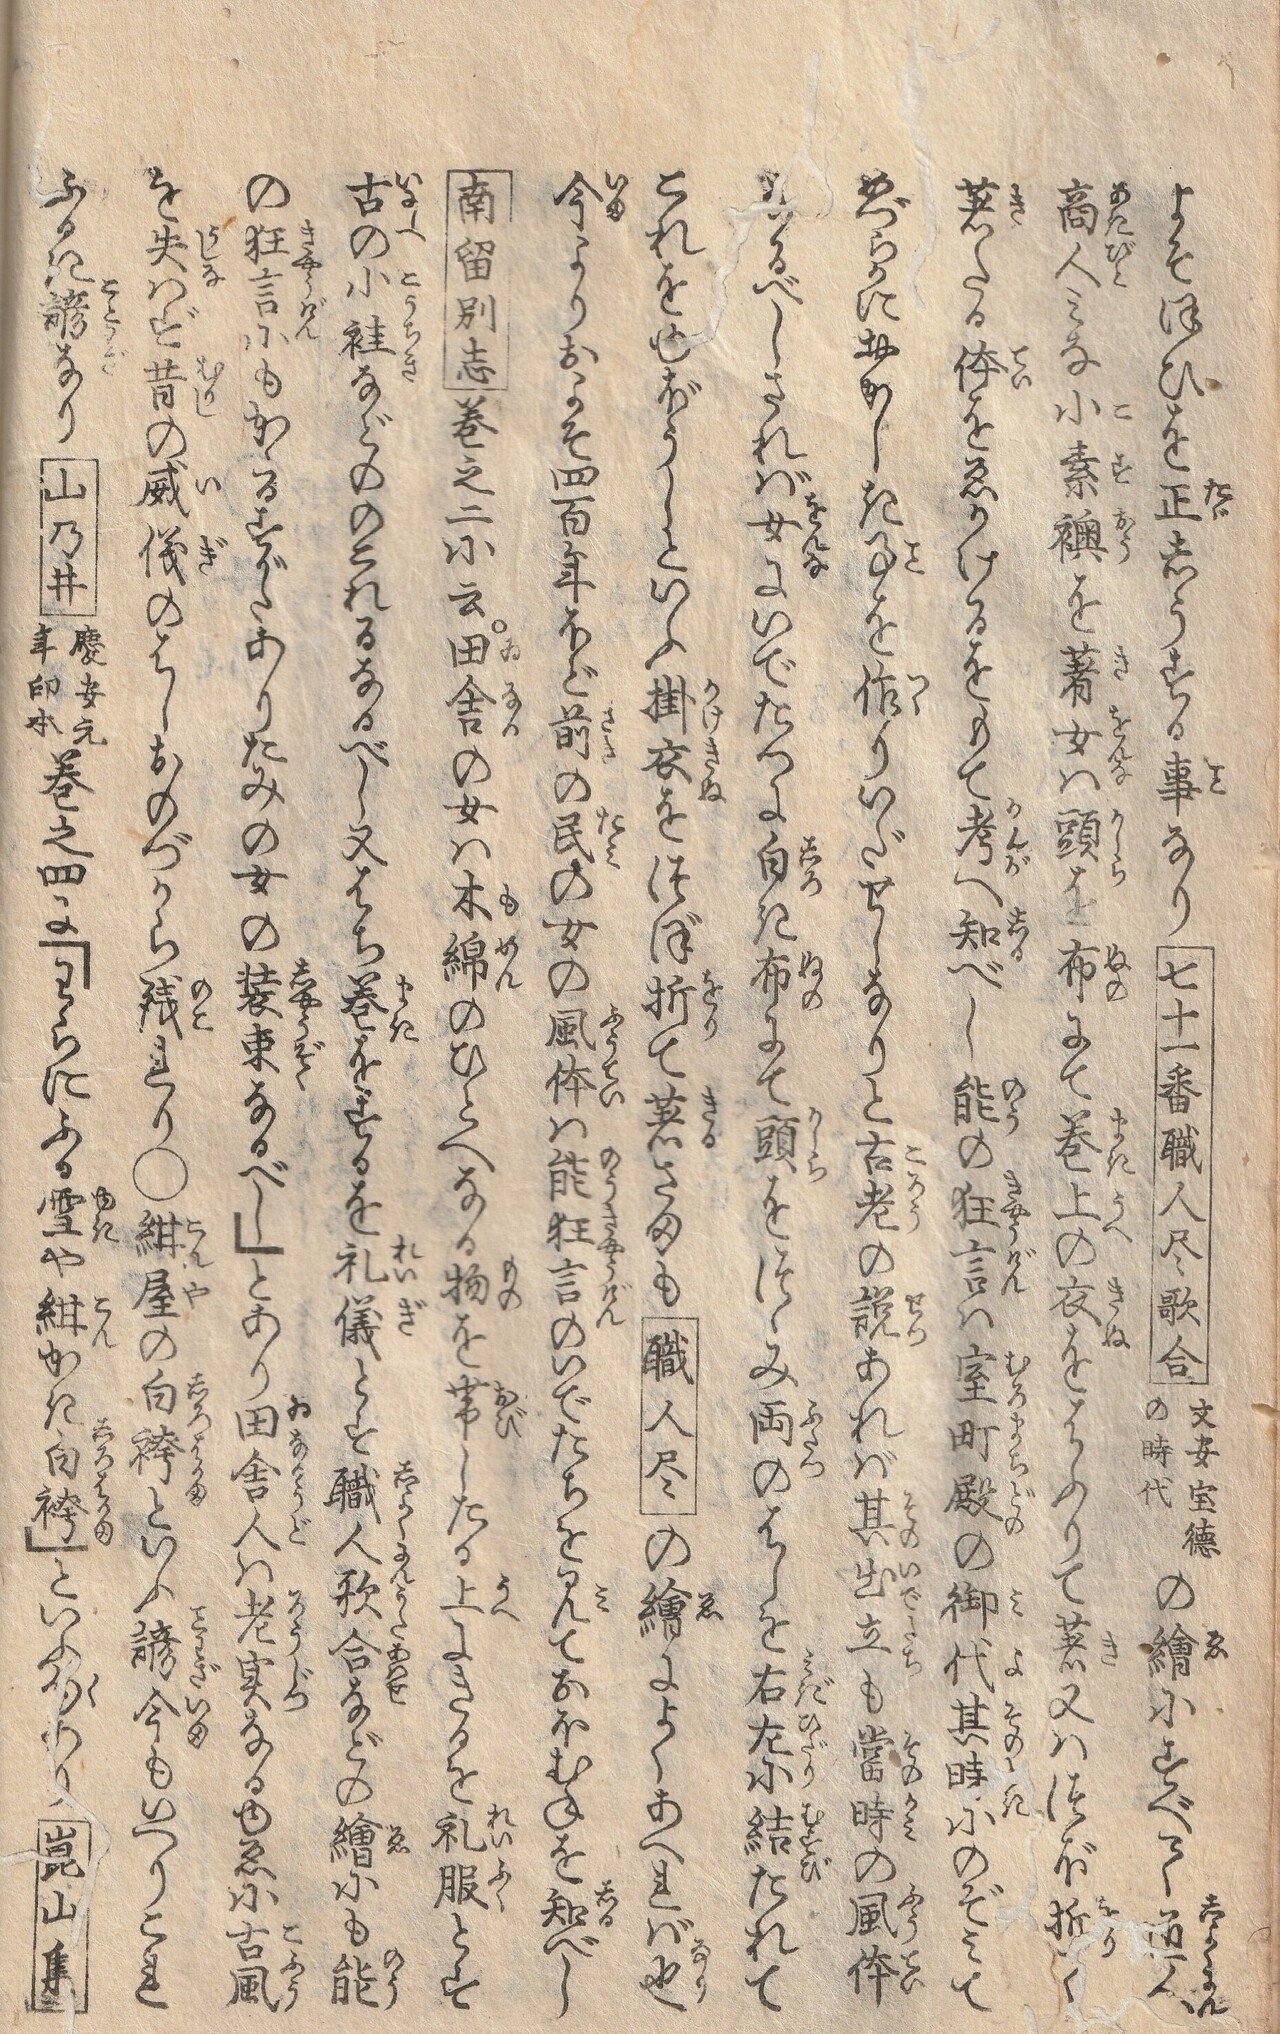 よそほひを正しうする事なり七十一番職人尽歌合文安宝徳の時代の繪にすべて職人
商人みな小素襖を著女は頭を布にて巻上の衣をはふりて着又はつぼ折て
着たる体をゑがけるをもて考へ知べし能の狂言は室町殿の御代其時にのぞみて
めづらかにおかしき事を作りいだせしなりと古老の説あれば其出立も當時の風体
なるべしされば女のいでたつに白き布にて頭をつゝみ両のはしを右左に結たれて
これをびなうしといふ掛衣をつぼ折て着るさまも職人尽の繪によくあへれば也
今よりおよそ四百年ほど前の民の女の風体は能狂言のいでたちを見ておほむねを知べし
南留別志巻之二に云。田舎の女は木綿のひとへなる物を帯したる上にきるを礼服とす
古の小袿などののこれるなるべし又はち巻をするを礼儀とす職人歌合などの繪にも能
の狂言にもかゝるすがたありたみの女の装束なるべし」とあり田舎人は老実なるゆゑに古風
を失はず昔の威儀のはしおのづから残れり○紺屋の白袴といふ諺今もいへりこれ
ふるき諺なり山乃井慶安元年印本巻之四に「そらにふる雪や紺かき白袴」といふ句あり崑山集